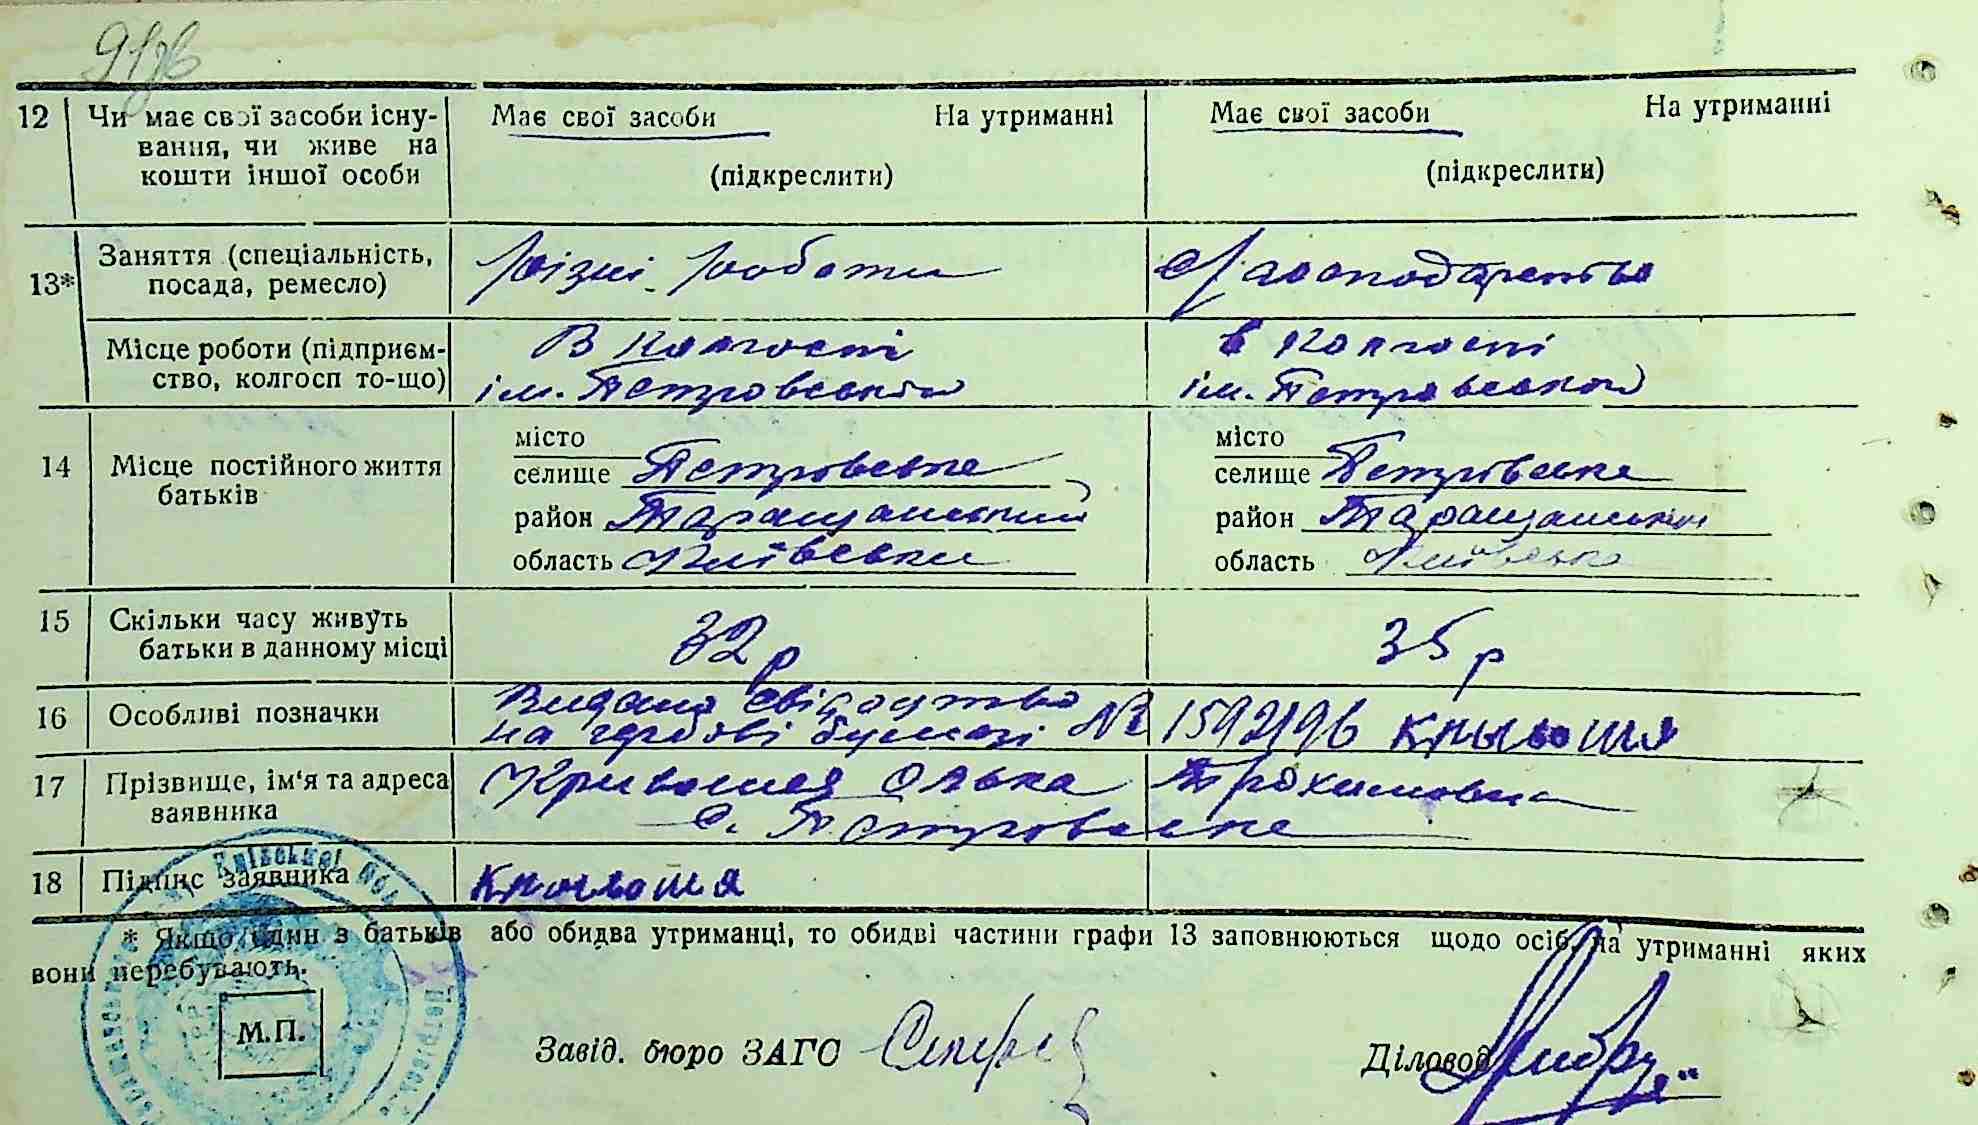 91зв
12 Чи має свої засоби існу- Має свої засоби На утриманні Має свої засоби На утриманні
вання, чи живе на
кошти іншої особи (підкреслити) (підкреслити)
13* Заняття (спеціальність, різні роботи с/господарство
посада, ремесло)
Місце роботи (підприєм- В колгоспі в колгоспі
ство, колгосп то-що) ім. Петровський ім. Петровський
14 Місце постійного життя місто місто
батьків селище Петрівське селище Петрівське
район Таращанський район Таращанський
область Київська область Київська
15 Скільки часу живуть 32 р 35 р
батьки в данному місці
16 Особливі позначки Видано свідоцтво
на гербові бумазі № 1592196 Крывошия
17 Прізвище, ім'я та адреса Кривошея Олька Трохимовна
заявника с. Петрівське
18 Підпис заявника Крывошия
* Якщо один з батьків або обидва утриманці, то обидві частини графи 13 заповнюються щодо осіб, на утриманні яких
вони перебувають.
М.П.
Завід. бюро ЗАГС Діловод